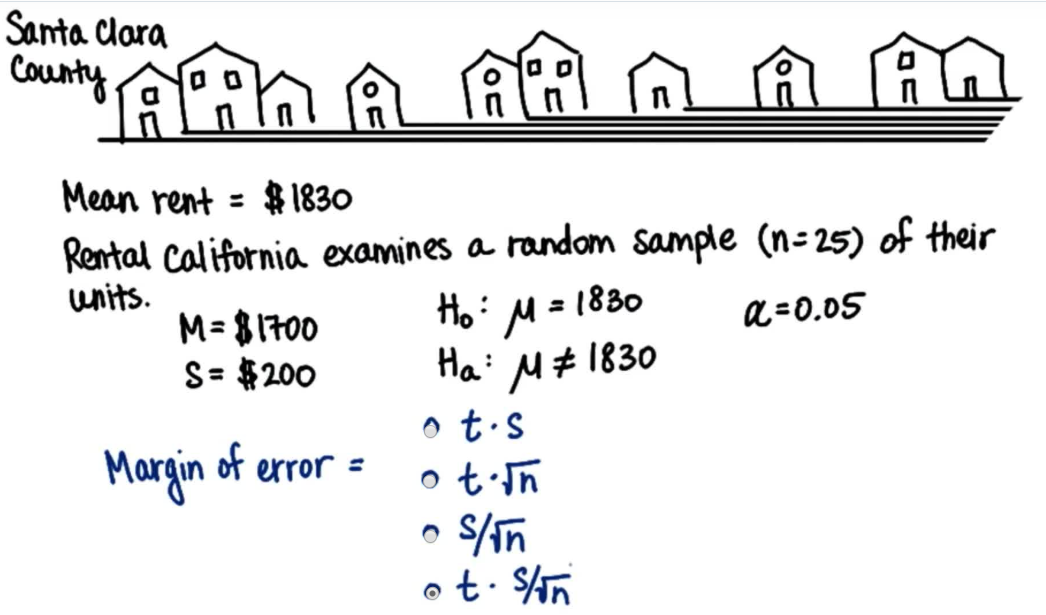 Santa Clara
County
Mean rent = $1830
Rental California examines a random sample (n=25) of their
units.
M = $1700
S = $200
H₀: μ = 1830
Hₐ: μ ≠ 1830
α=0.05
Margin of error =
t · s
t · √n
s/√n
t · s/√n